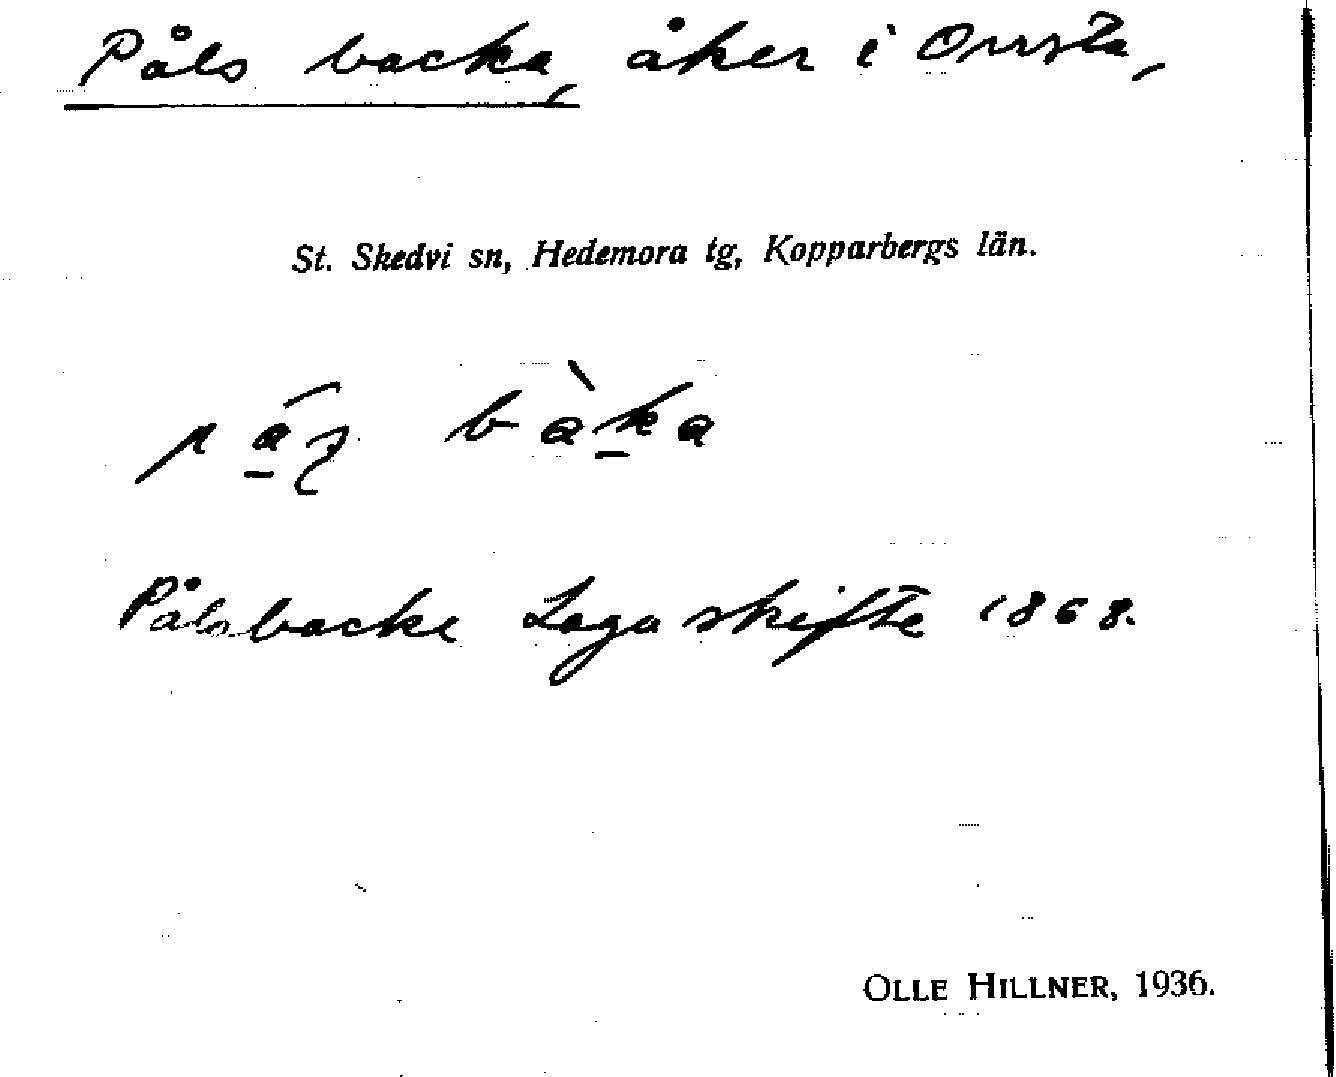 Påls backa, åker i Onsta,
St. Skedvi sn, Hedemora tg, Kopparbergs län.
bàka
Pålsbacke Laga skifte 1868.
OLLE HILLNER, 1936.